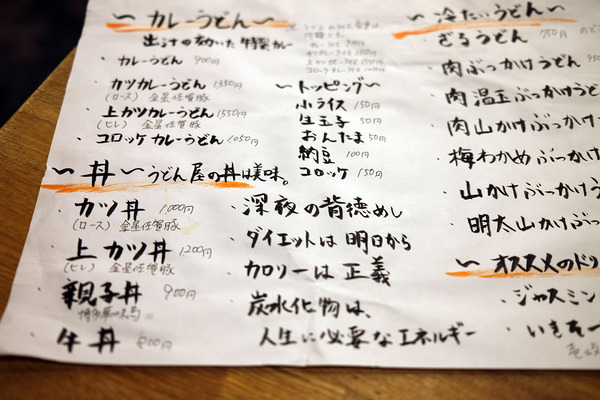 〜 カレーうどん 〜
出汁の効いた 特製カレー
・カレーうどん 900円
・カツカレーうどん 1350円
(ロース) 金星佐賀豚
・上カツカレーうどん 1550円
(ヒレ) 金星佐賀豚
・コロッケカレーうどん 1050円
〜トッピング〜
小ライス 150円
生玉子 50円
おんたま 50円
納豆 100円
コロッケ 150円
〜 丼 〜 うどん屋の丼は美味。
・カツ丼 1,000円
(ロース) 金星佐賀豚
・上カツ丼 1,200円
(ヒレ) 金星佐賀豚
・親子丼 900円
・牛丼
・深夜の背徳めし
・ダイエットは明日から
・カロリーは正義
・炭水化物は、
人生に必要なエネルギー
〜 冷たいうどん 〜
・ざるうどん 750円
・肉ぶっかけうどん
・肉温玉ぶっかけうど
・肉山かけぶっかけ
・梅わかめぶっかけ
・山かけぶっかけう
・明太山かけぶっか
〜 オススメのドリ
・ジャスミン